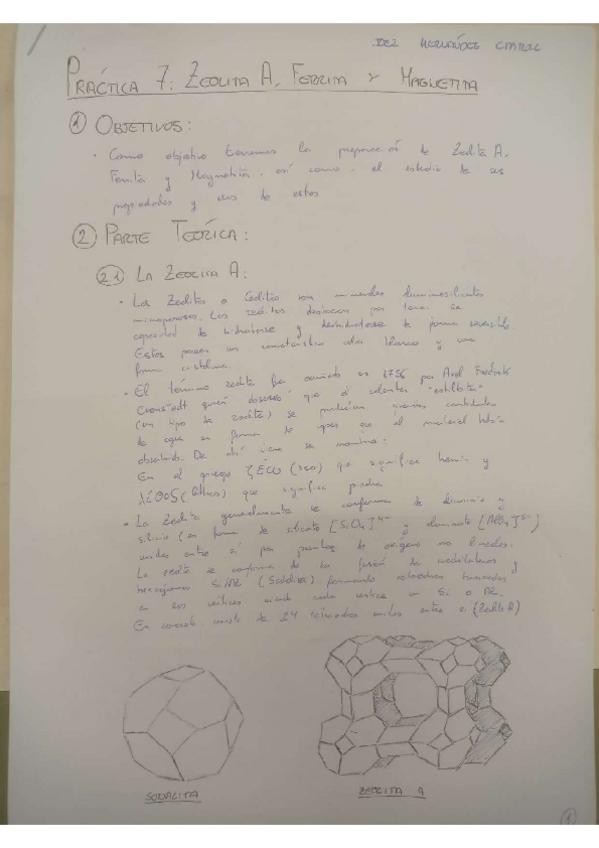 PRÁCTICA 7: ZEOLITA A, FERRITA Y MAGNETITA
① OBJETIVOS:
· Como objetivo tenemos la preparación de Zeolita A,
Ferrita y Magnetita, así como, el estudio de sus
propiedades y usos de estos
② PARTE TEÓRICA:
2.1 LA ZEOLITA A:
· Las Zeolitas o Ceolitas son minerales aluminosilicatos
microporosos. Las zeolitas destacan por tener la
capacidad de hidratarse y deshidratarse de forma reversible.
Estos poseen un característico color blanco y una
forma cristalina.
· El término zeolita fue acuñado en 1756 por Axel Fredrik
Cronstedt quien observó que al calentar "estilbita"
(un tipo de zeolita) se producían grandes cantidades
de agua en forma de gas que el material había
absorbido. De ahí viene su nombre:
En el griego ζέω (zeo) que significa hervir y
λίθος (lithos) que significa piedra
· La Zeolita generalmente se conforma de aluminio y
silicio (en forma de silicato [SiO₄]⁴⁻ y aluminato [AlO₄]⁵⁻)
unidos entre sí por puentes de oxígeno no lineales.
La zeolita se conforma de la fusión de cuadriláteros y
hexágonos Si/Al (Sodalita) formando octaedros truncados
en sus vértices siendo cada vértice un Si o Al.
En concreto consta de 24 tetraedros unidos entre sí (Zeolita A)
SODALITA
ZEOLITA A
①